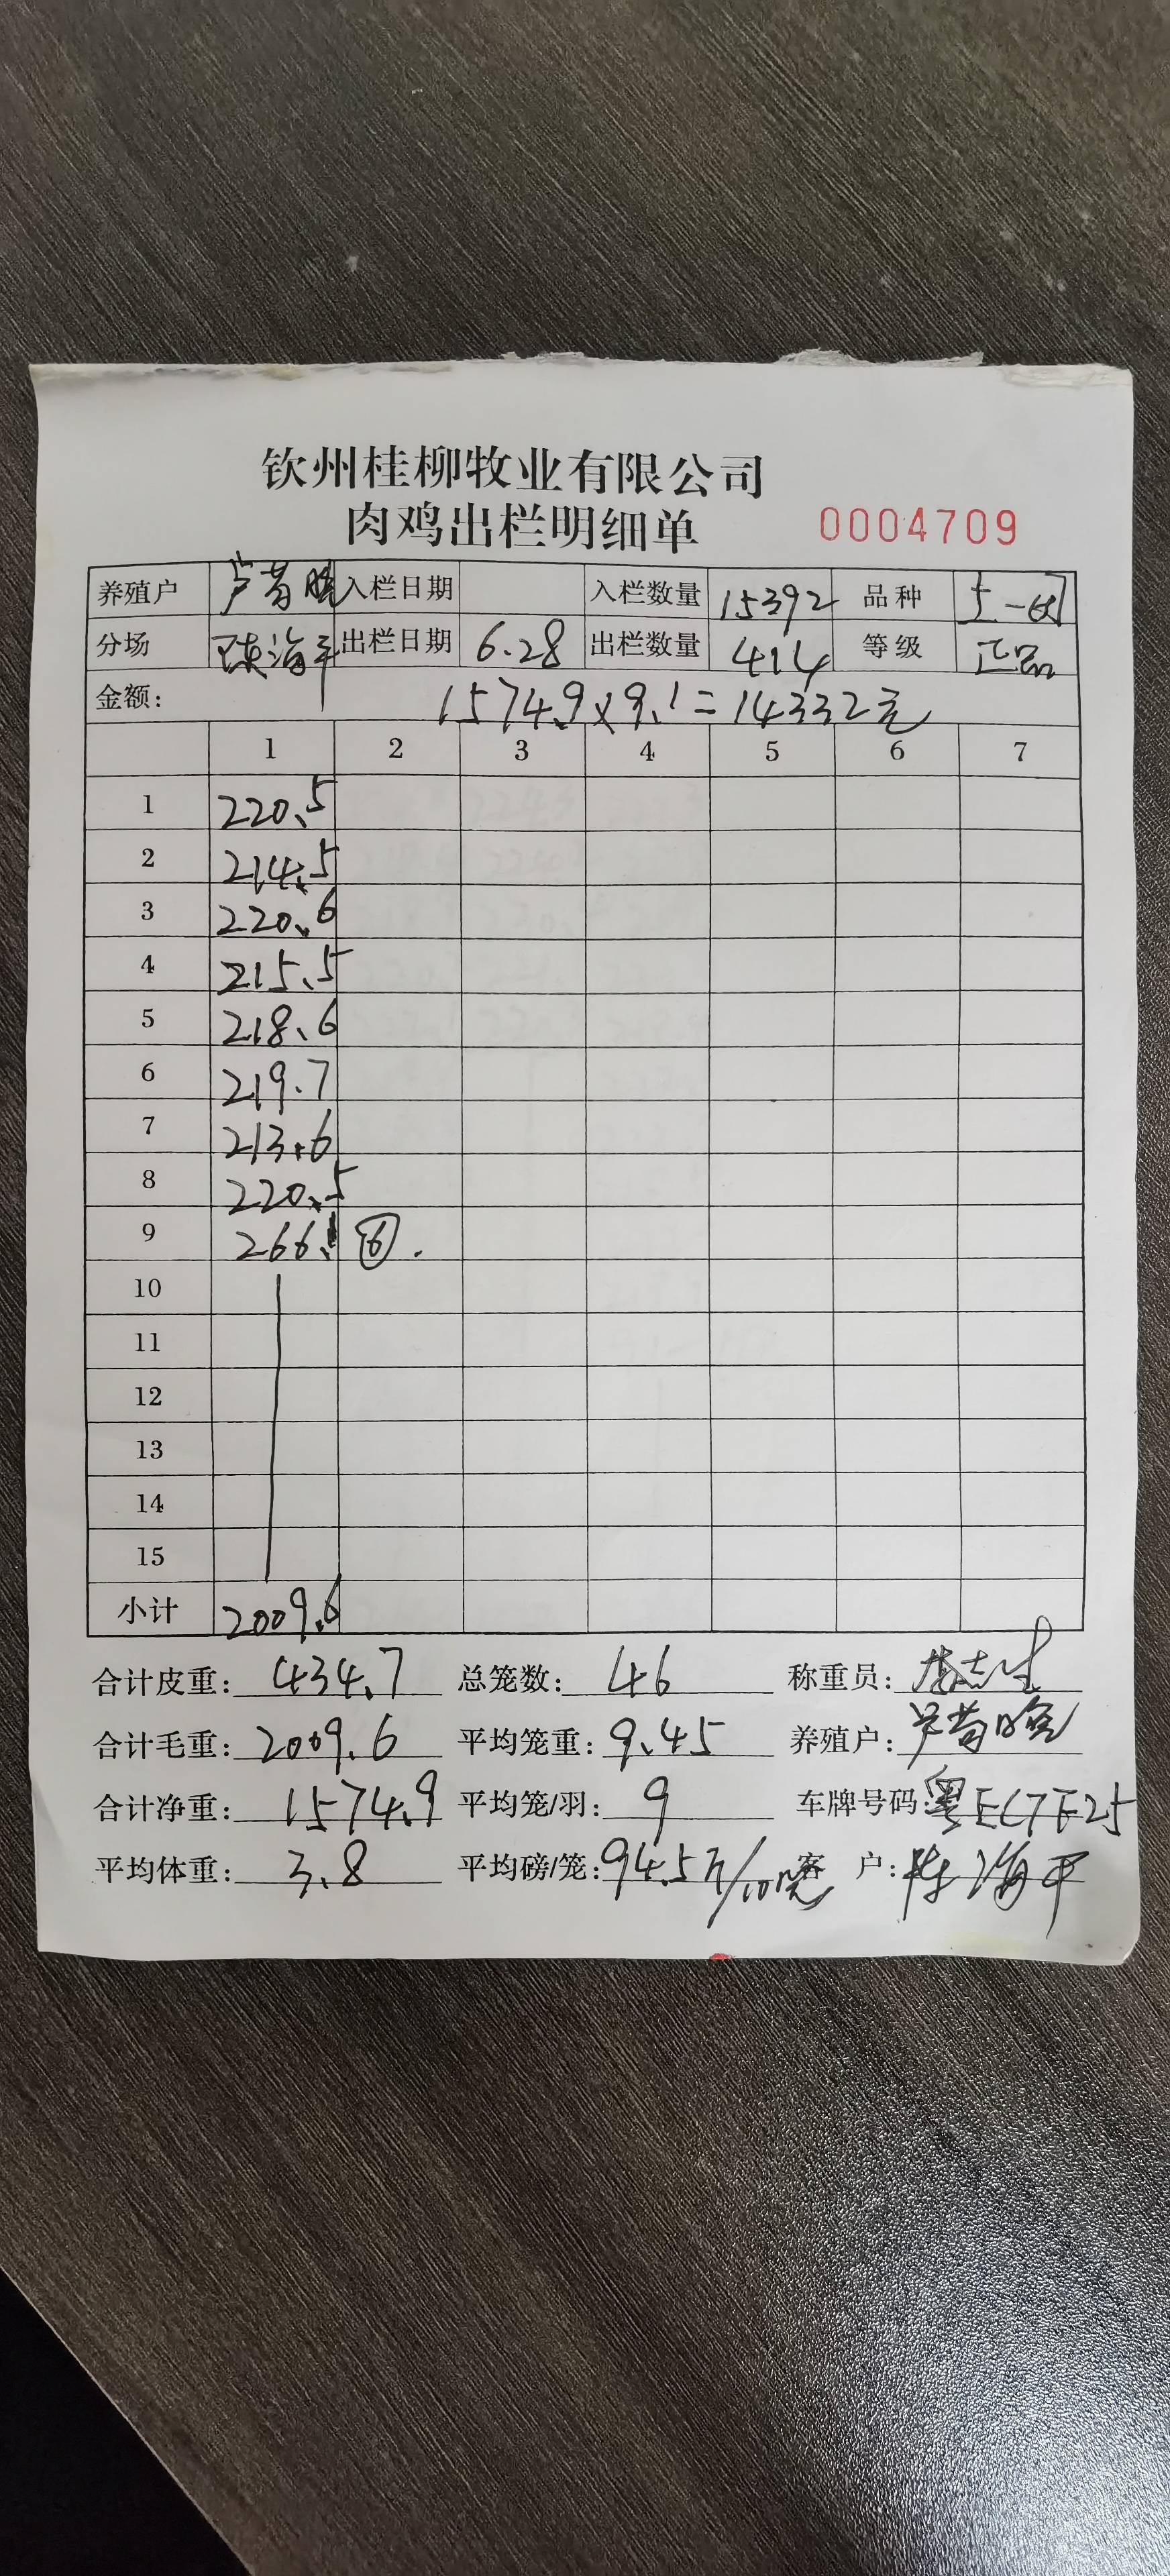 钦州桂柳牧业有限公司
肉鸡出栏明细单 0004709
养殖户 卢昔晓 入栏日期 入栏数量 15392 品种 土一
分场 陈海平 出栏日期 6.28 出栏数量 414 等级 正品
金额: 1574.9×9.1=14332元
1 2 3 4 5 6 7
1 220.5
2 214.5
3 220.6
4 215.5
5 218.6
6 219.7
7 213.6
8 220.5
9 266.1 ⑥.
10
11
12
13
14
15
小计 2009.6
合计皮重: 434.7 总笼数: 46 称重员:
合计毛重: 2009.6 平均笼重: 9.45 养殖户: 卢昔晓
合计净重: 1574.9 平均笼/羽: 9 车牌号码: 粤EC7F25
平均体重: 3.8 平均磅/笼: 94.5斤/10笼 客户: 陈海平